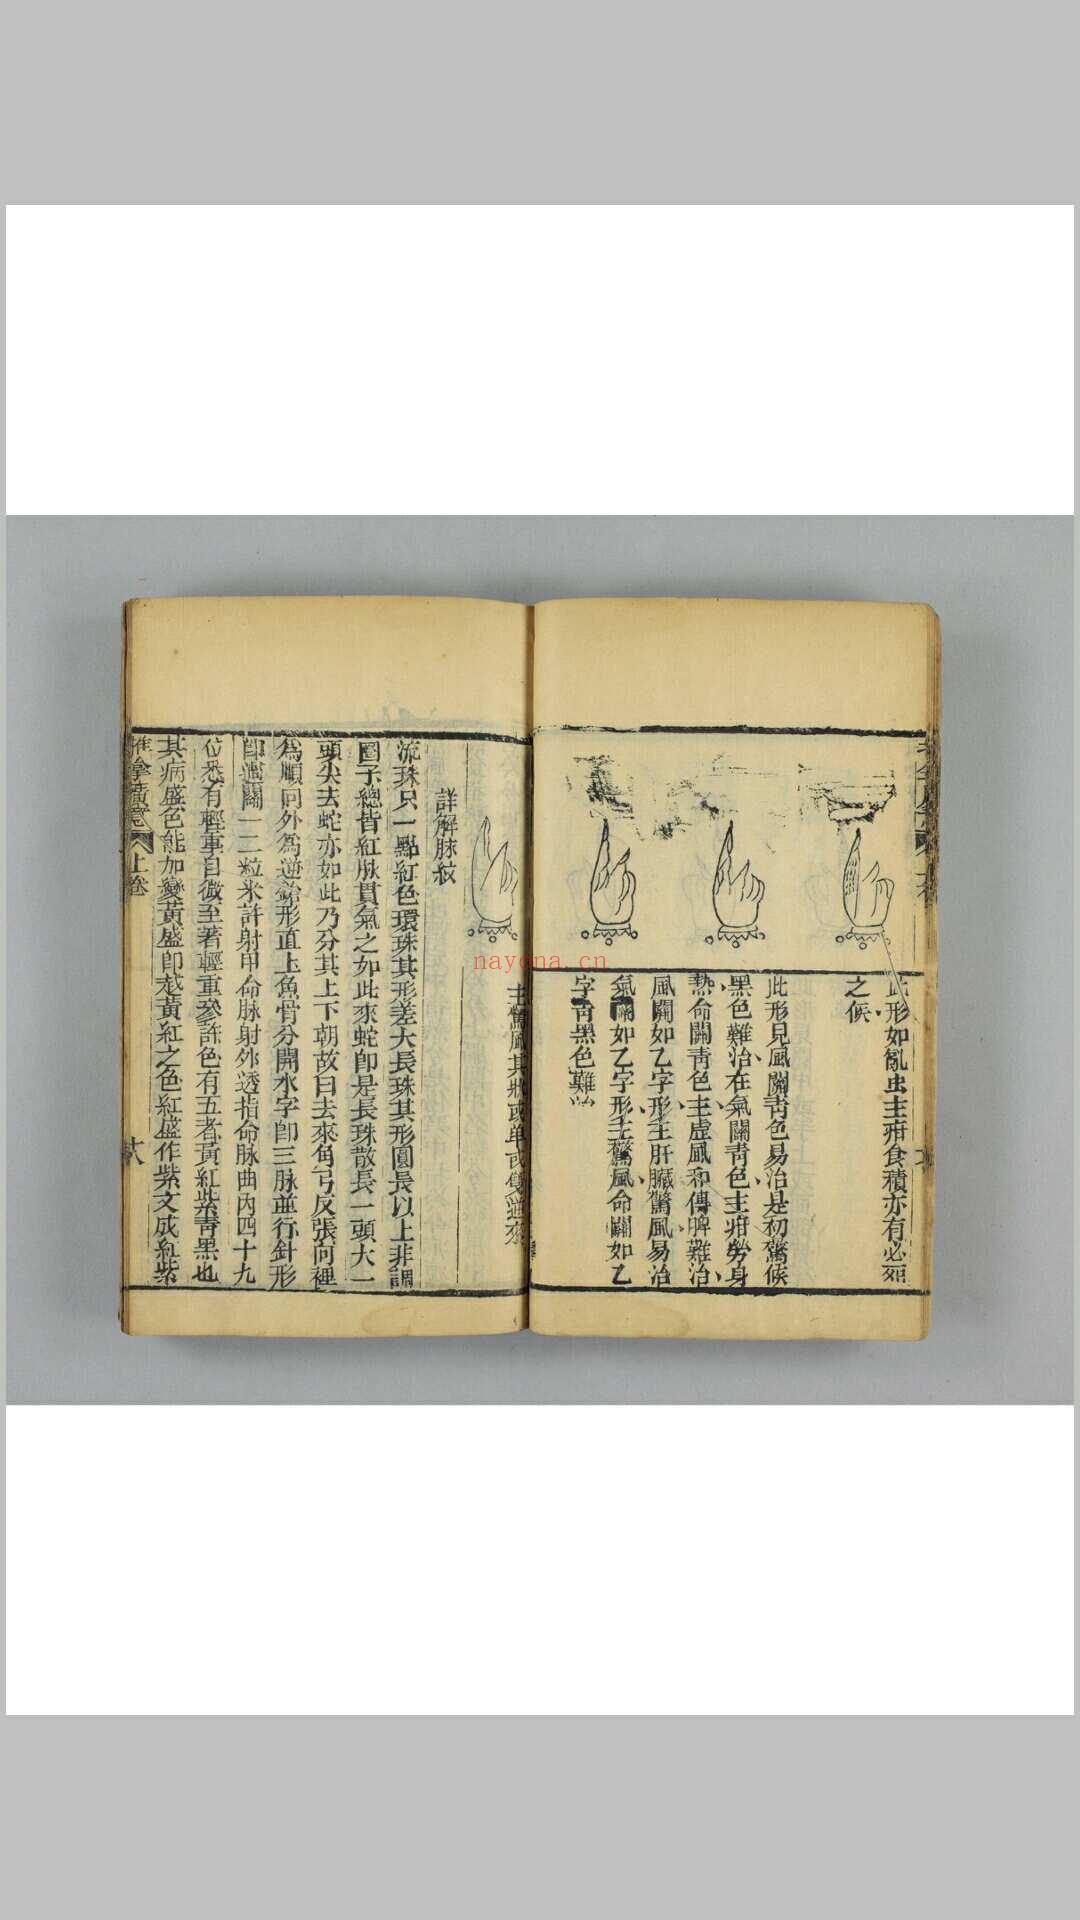 此形如亂虫主疳食積亦有必死
之候
此形見風關青色易治是初驚候
黑色難治在氣關青色主疳勞身
熱命關青色主虛風和傳脾難治
風關如乙字形主肝臟驚風易治
氣關如乙字形主驚風命關如乙
字青黑色難治
主驚風其狀或单或雙
詳解脉紋
流珠只一點紅色環珠其形差大長珠其形圓長以上非謂
圈子總皆紅脉貫氣之如此來蛇卽是長珠散長一頭大一
頭尖去蛇亦如此乃分其上下朝故曰去來角弓反張向裡
為順向外為逆鎗形直上魚骨分開水字卽三脉並行針形
卽過關一二粒米許射甲命脉射外透指命脉曲內四十九
位悉有輕重自微至著輕重參許色有五者黃紅紫青黑也
其病盛色能加變黃盛卽越黃紅之色紅盛作紫文成紅紫
推拿廣意
上卷
十八
nayona.cn